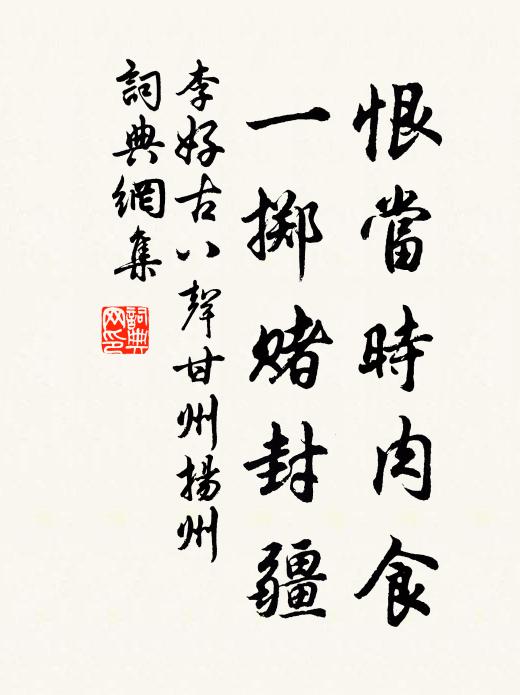 恨當時肉食
一擲賭封疆
李好古八聲甘州揚州
詞典網集
詞典網印